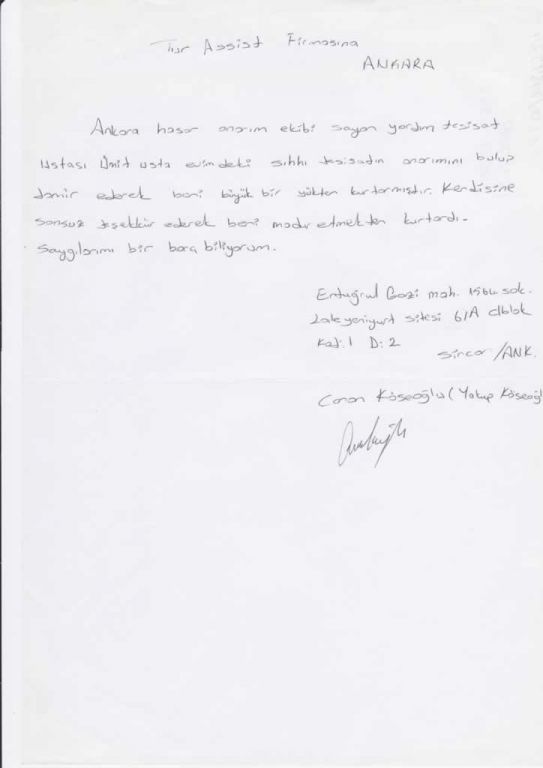 Tur Assist Firmasına
ANKARA
Ankara hasar onarım ekibi sayan yardım tesisat
Ustası Ümit usta evimdeki sıhhi tesisatın onarımını bulup
tamir ederek beni büyük bir yükten kurtarmıştır. Kendisine
sonsuz teşekkür ederek beni madur etmekten kurtardı.
Saygılarımı bir borç biliyorum.
Ertuğrul Gazi mah. sok.
Lale yeniyurt sitesi 6/A blok
Kat: 1 D: 2
Sincan /ANK.
Canan Köseoğlu (Yakup Köseoğl